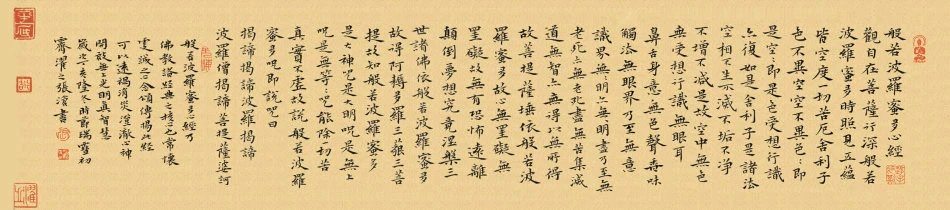 般若波羅蜜多心經
觀自在菩薩行深般若
波羅蜜多時照見五蘊
皆空度一切苦厄舍利子
色不異空空不異色:即
是空:即是色受想行識
亦復如是舍利子是諸法
空相不生不滅不垢不淨
不增不減是故空中無色
無受想行識無眼耳
鼻舌身意無色聲香味
觸法無眼界乃至無意
識界無:明亦無明盡乃至無
老死亦無老死盡無苦集滅
道無智亦無得以無所得
故菩提薩埵依般若波
羅蜜多故心無罣礙無
罣礙故無有恐怖遠離
顛倒夢想究竟涅槃三
世諸佛依般若波羅蜜多
故得阿耨多羅三藐三菩
提故知般若波羅蜜多
是大神咒是大明咒是無上
咒是無等:咒能除一切苦
真實不虛故說般若波羅
蜜多咒即說咒曰
揭諦揭諦波羅揭諦
波羅僧揭諦菩提薩婆訶
般若波羅蜜多心經乃
佛教諸經典之核心也常懷
虔誠之心念頌傳揚此經
可以遠禍消災澄澈心神
開啟無上光明真智慧
歲次隆冬時節瑞雪初
霽濯之張濱書